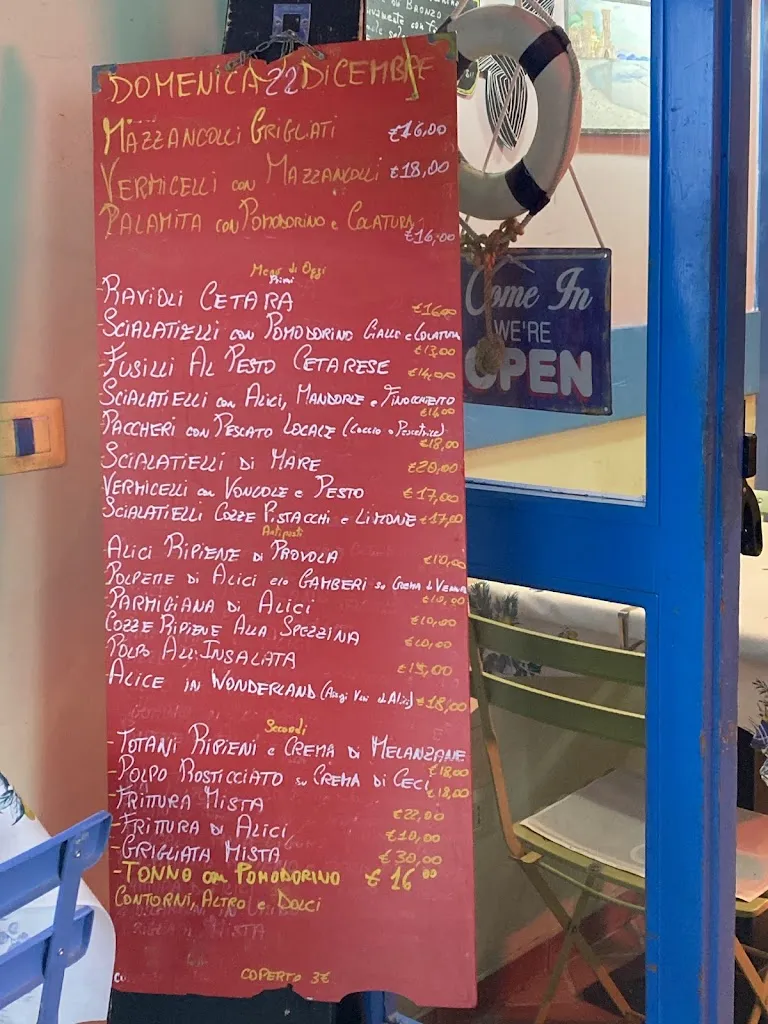 DOMENICA 22 DICEMBRE
MAZZANCOLLI GRIGLIATI €16,00
VERMICELLI con MAZZANCOLLI €18,00
PALAMITA con POMODORINO e COLATURA
€16,00
Menù di Oggi
Primi
-RAVIOLI CETARA €16,00
-SCIALATIELLI con POMODORINO GIALLO e COLATURA
€13,00
-FUSILLI AL PESTO CETARESE €14,00
SCIALATIELLI con ALICI, MANDORLE e FINOCCHIETTO
€16,00
PACCHERI con PESCATO LOCALE (Coccio o Pescatrice)
€18,00
SCIALATIELLI DI MARE €20,00
VERMICELLI con VONGOLE e PESTO €17,00
SCIALATIELLI COZZE PISTACCHI e LIMONE €17,00
Antipasti
-ALICI RIPIENE DI PROVOLA €10,00
POLPETTE DI ALICI e/o GAMBERI su CREMA di
-PARMIGIANA DI ALICI
€10,00
COZZE RIPIENE ALLA SPEZZINA
€10,00
POLPO ALL'INSALATA
€15,00
ALICE IN WONDERLAND €18,00
Secondi
-TOTANI RIPIENI e CREMA DI MELANZANE
€18,00
-POLPO ROSTICCIATO su CREMA DI CECI
€18,00
-FRITTURA MISTA €22,00
-FRITTURA DI ALICI €10,00
-GRIGLIATA MISTA €30,00
-TONNO con POMODORINO €16,00
CONTORNI, ALTRO e DOLCI
COPERTO 3€
Come In
WE'RE
OPEN